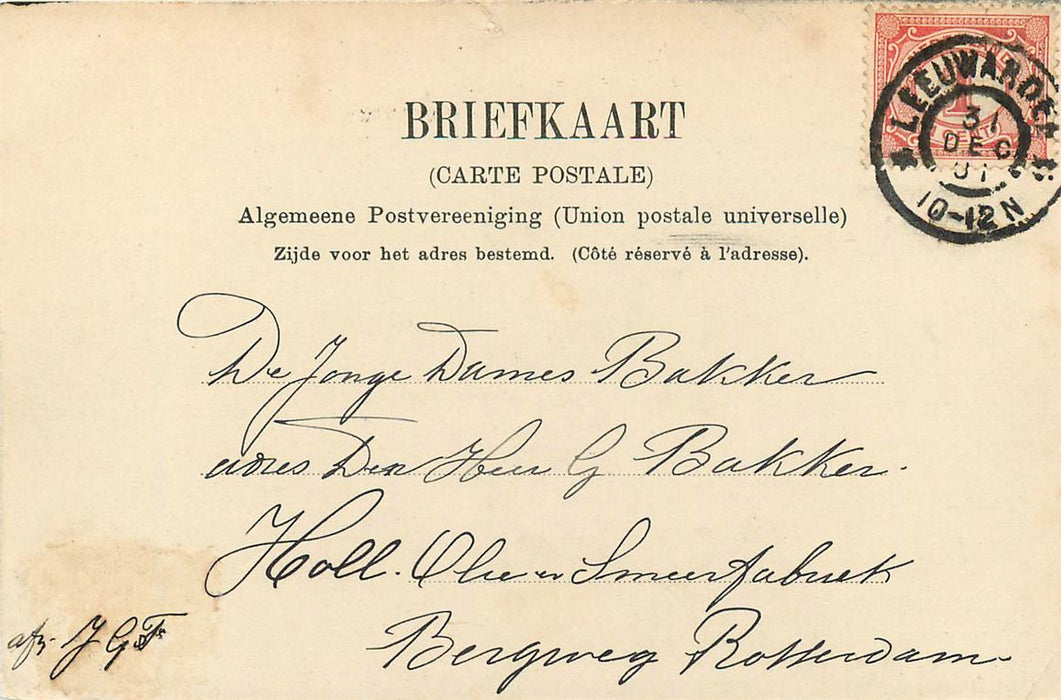 BRIEFKAART
(CARTE POSTALE)
Algemeene Postvereeniging (Union postale universelle)
Zijde voor het adres bestemd. (Côté réservé à l'adresse).
LEEUWARDEN
31
DEC
01
10-12N
De Jonge Dames Bakker
adres Den Heer G Bakker.
Holl. Olie en Smeerfabriek
Bergweg Rotterdam
afz. J G